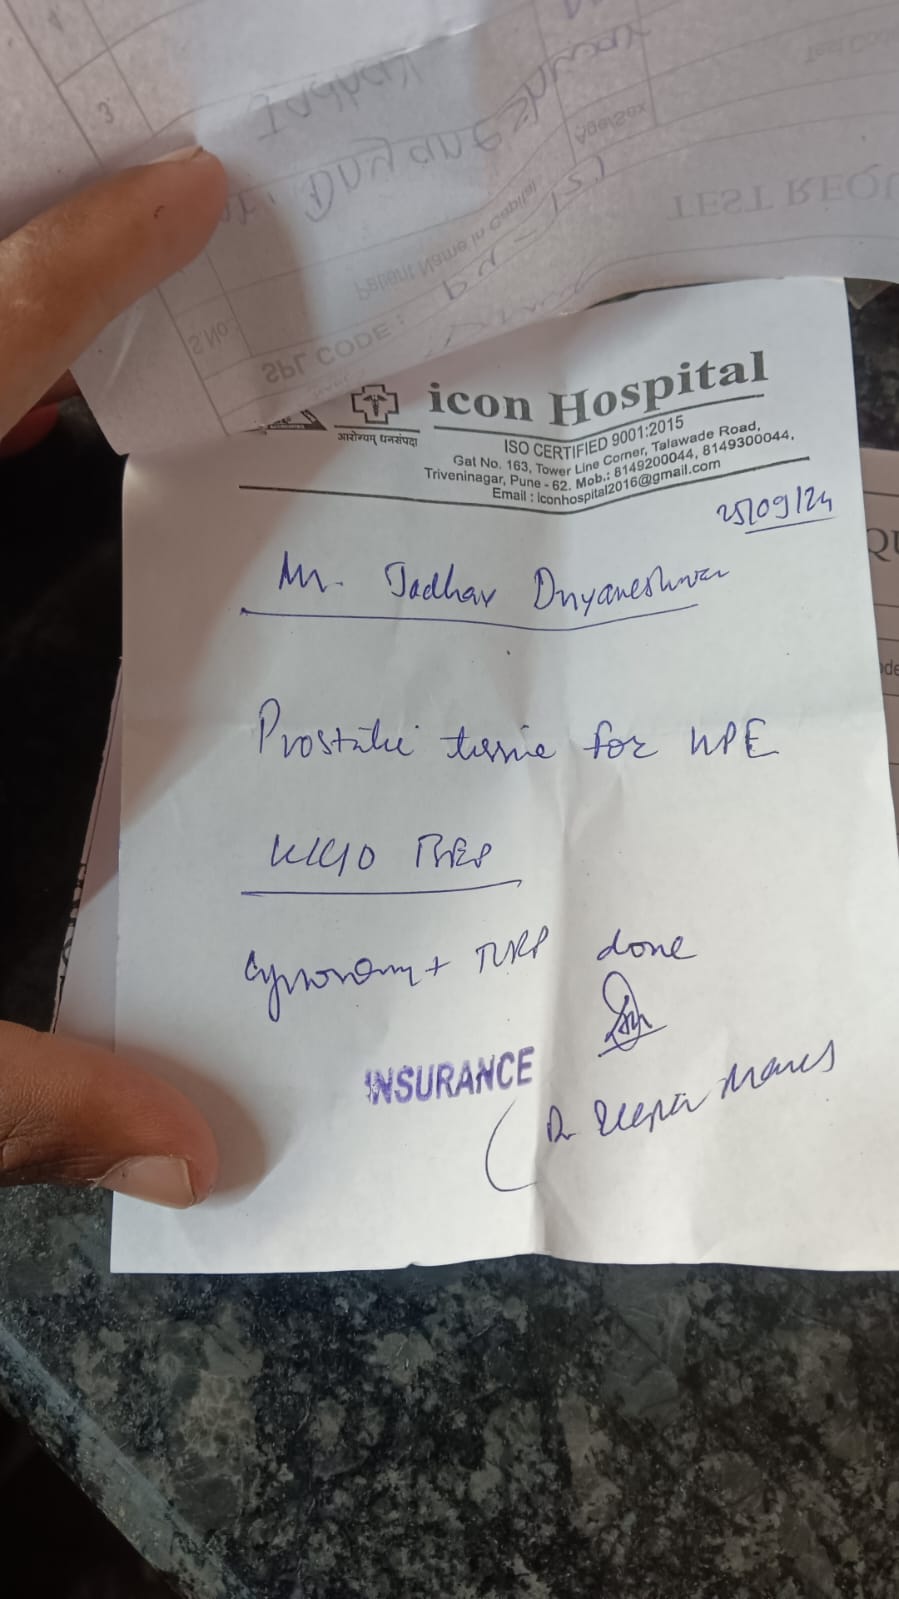 3
Jadhav
Mr. Dnyaneshwar
Age/Sex
Test Code
Patient Name in Capital
TEST REQU
S No.
SPL CODE : PU - 151
icon Hospital
आरोग्यम् धनसंपदा
ISO CERTIFIED 9001:2015
Gat No. 163, Tower Line Corner, Talawade Road,
Triveninagar, Pune - 62. Mob.: 8149200044, 8149300044,
Email : iconhospital2016@gmail.com
25/09/24
Mr. Jadhav Dnyaneshwar
Prostatic tissue for HPE
K/C/O
+ TURP done
INSURANCE
Dr